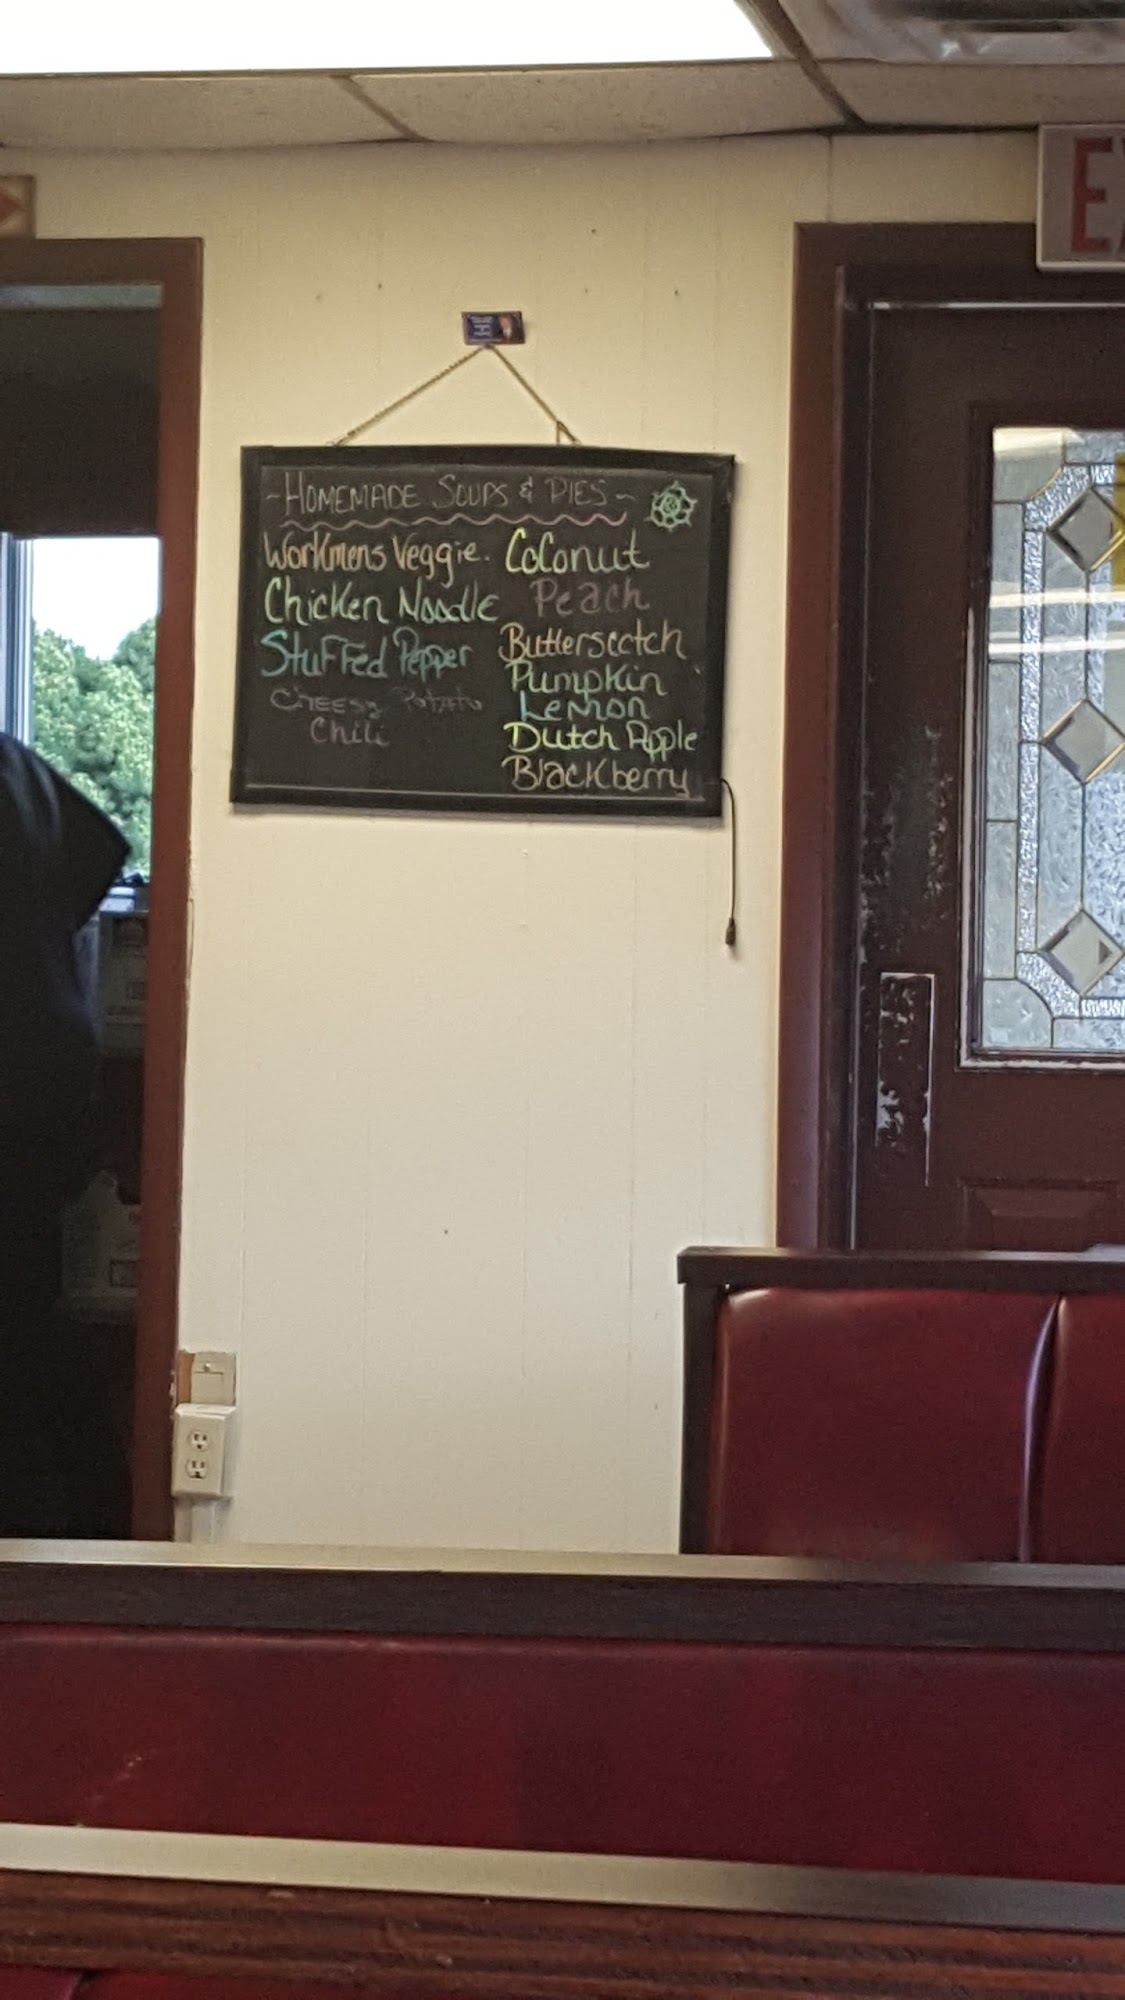 ~HOMEMADE SOUPS & PIES~
Workmens Veggie.
Chicken Noodle
Stuffed Pepper
Cheesy Potato
Chili
Coconut
Peach
Butterscotch
Pumpkin
Lemon
Dutch Apple
Blackberry